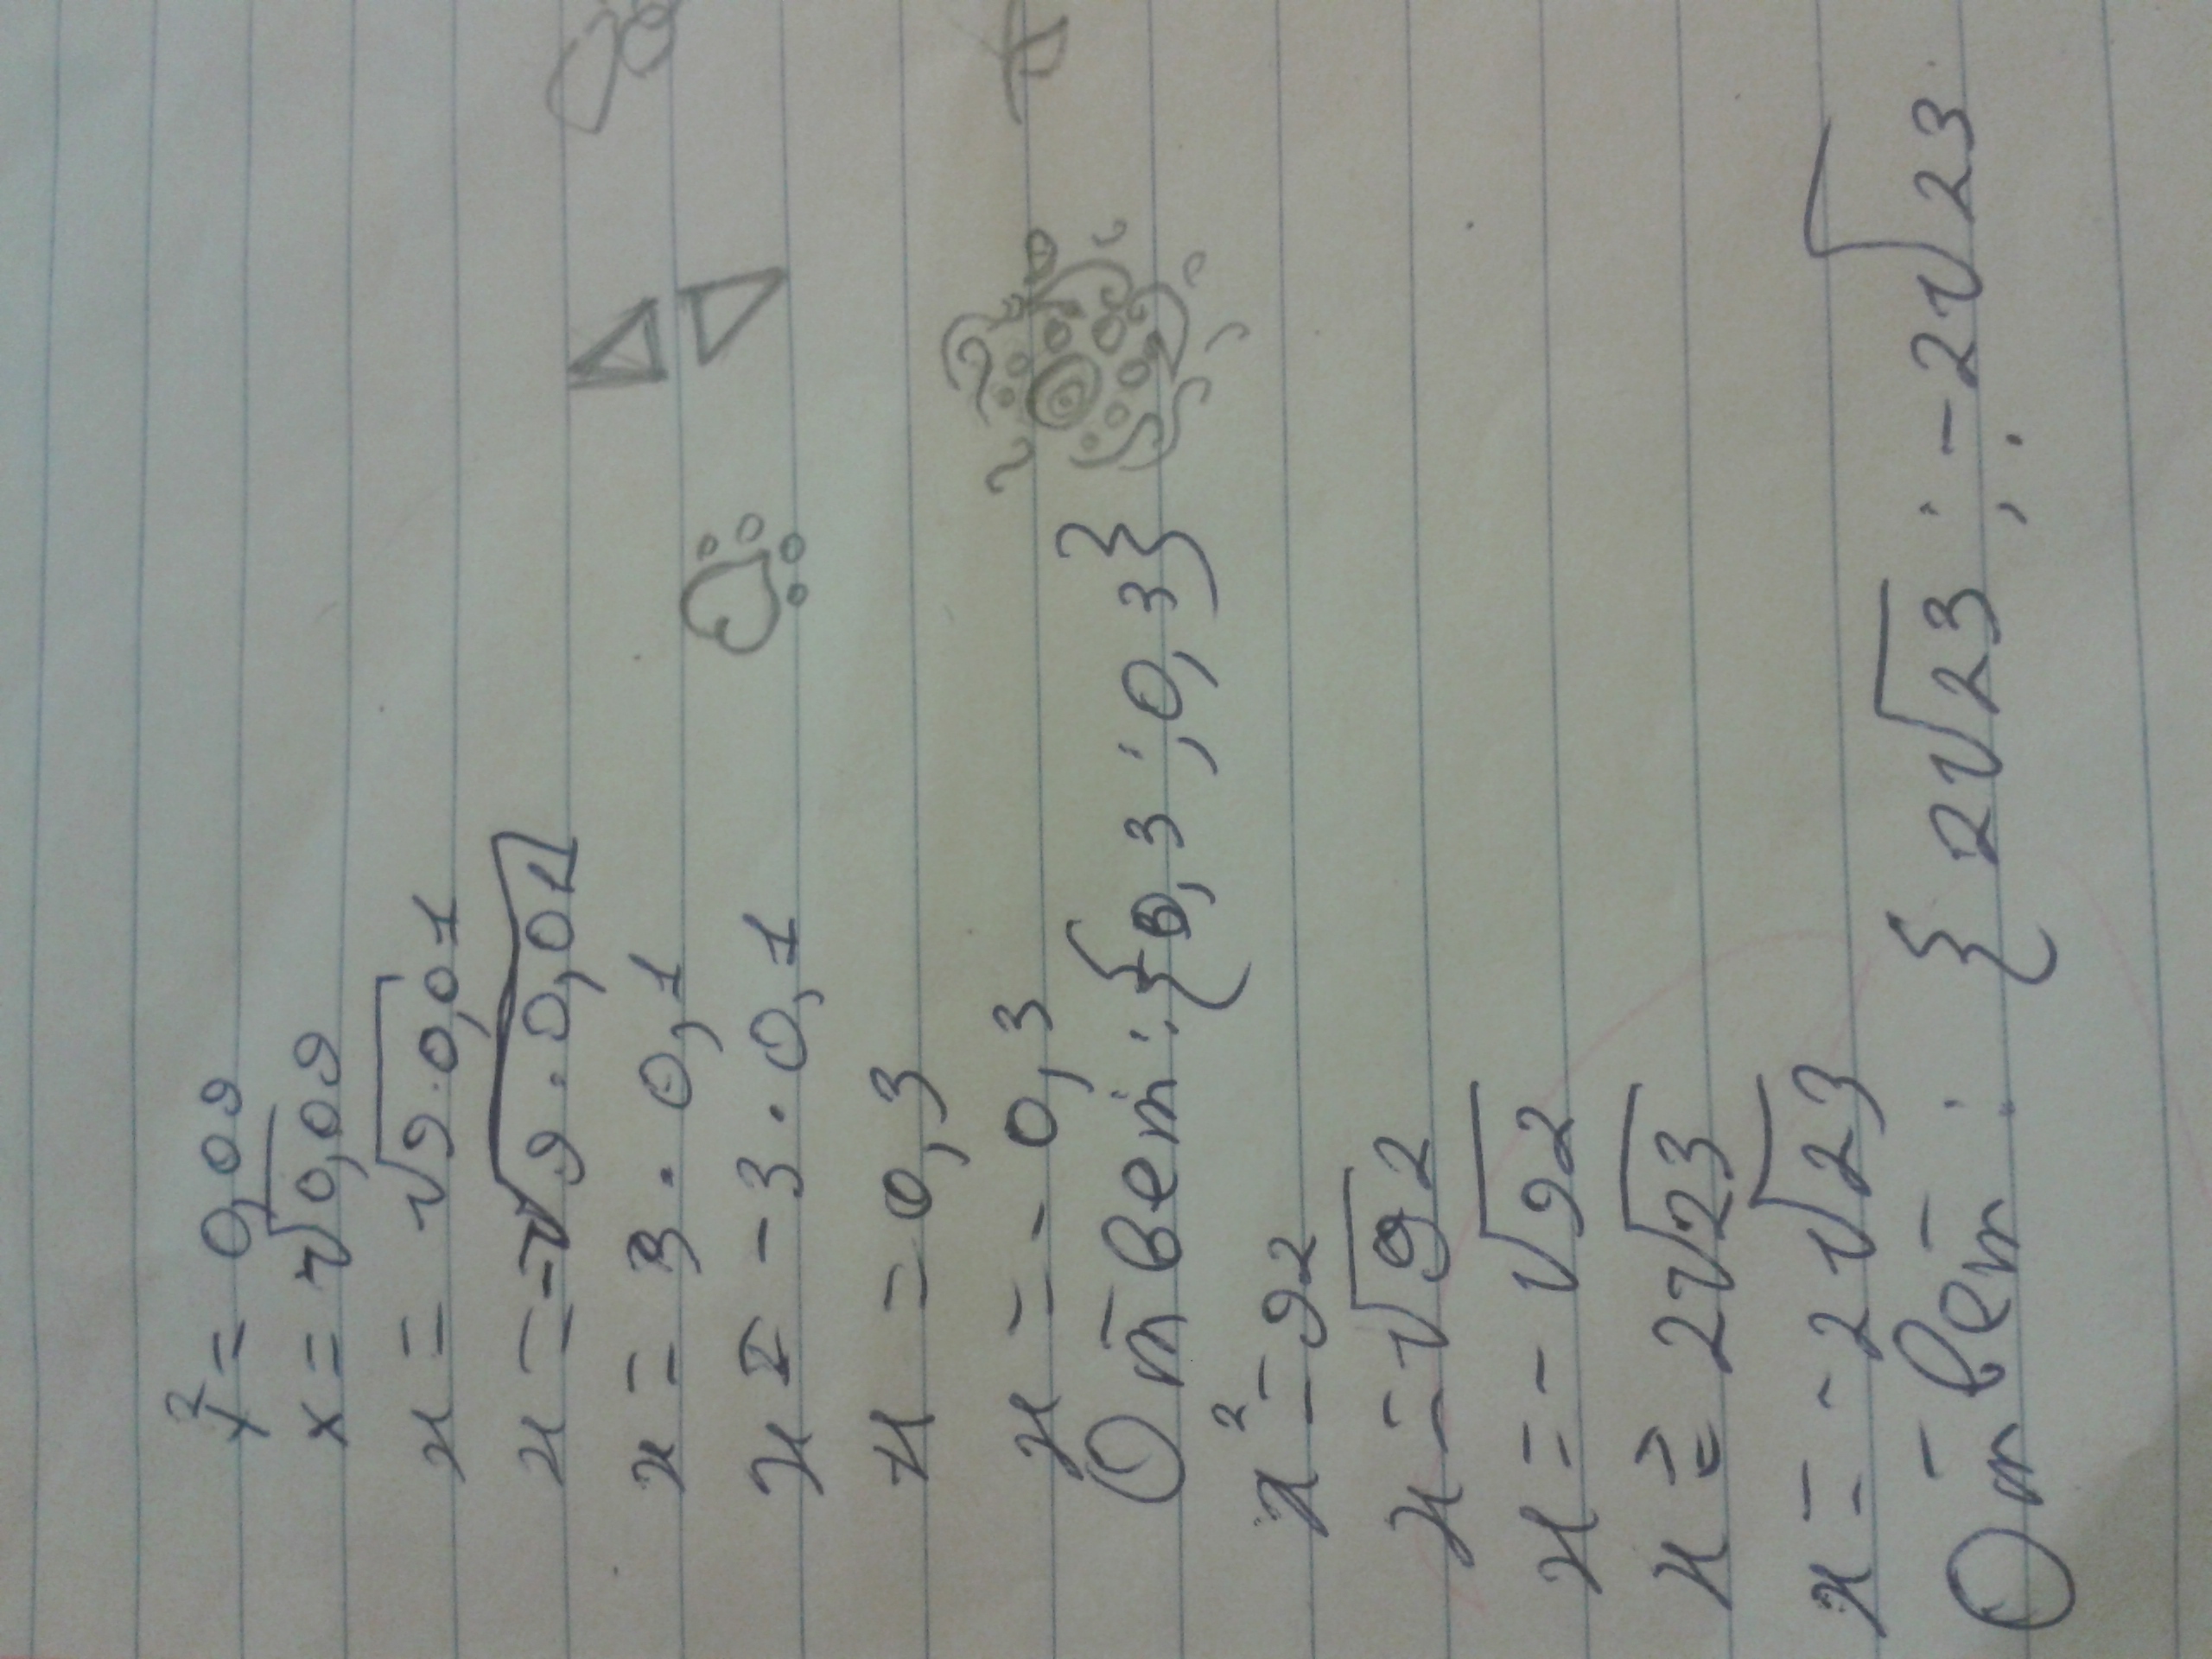 x² = 0,09
x = √0,09
x = √9·0,01
x = -√9·0,01
x = 3·0,1
x = -3·0,1
x = 0,3
x = -0,3
Ответ: {0,3 ; 0,3}
x² = 92
x = √92
x = -√92
x = 2√23
x = -2√23
Ответ: {2√23 ; -2√23.